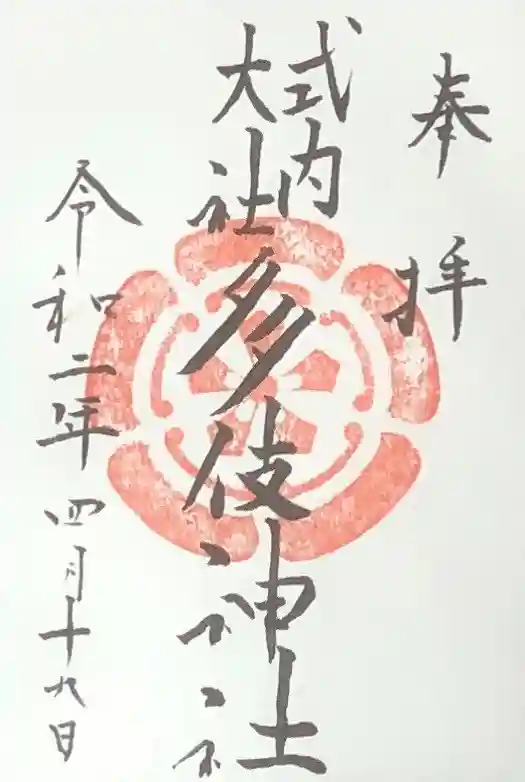 奉拝
式内
大社
多伎神社
令和二年四月十九日